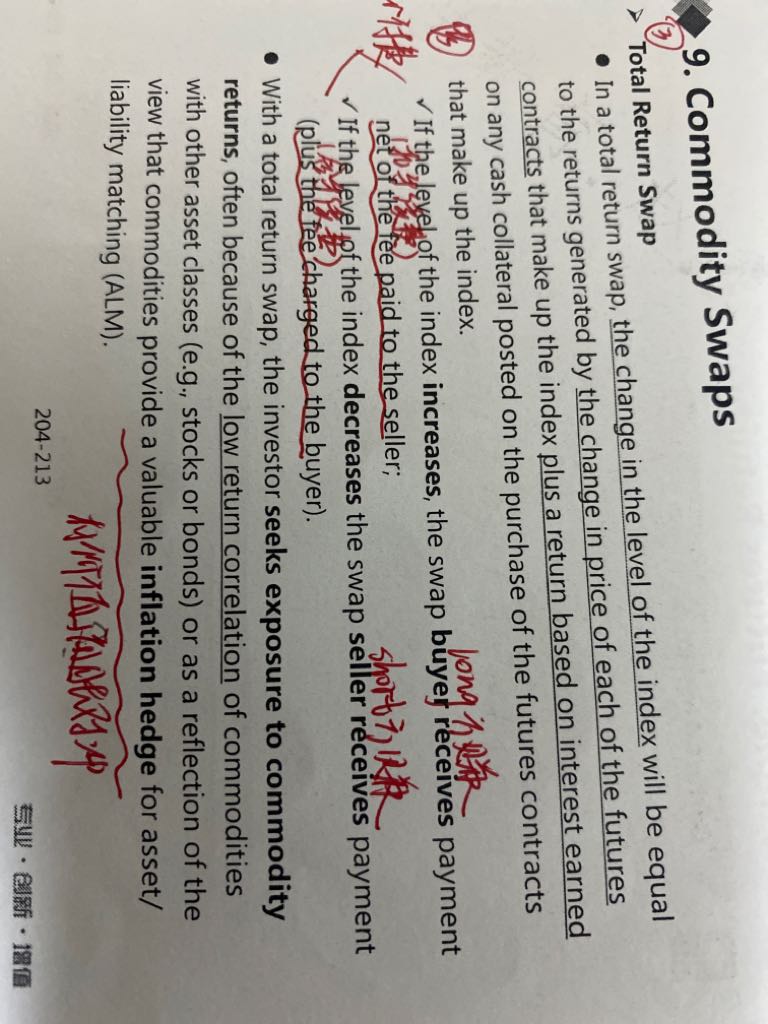 9. Commodity Swaps
③
➢ Total Return Swap
● In a total return swap, the change in the level of the index will be equal
to the returns generated by the change in price of each of the futures
contracts that make up the index plus a return based on interest earned
on any cash collateral posted on the purchase of the futures contracts
that make up the index.
✓ If the level of the index increases, the swap buyer receives payment
long方
net of the fee paid to the seller;
✓ If the level of the index decreases the swap seller receives payment
short方收
(plus the fee charged to the buyer).
● With a total return swap, the investor seeks exposure to commodity
returns, often because of the low return correlation of commodities
with other asset classes (e.g., stocks or bonds) or as a reflection of the
view that commodities provide a valuable inflation hedge for asset/
liability matching (ALM).
204-213
专业·创新·增值